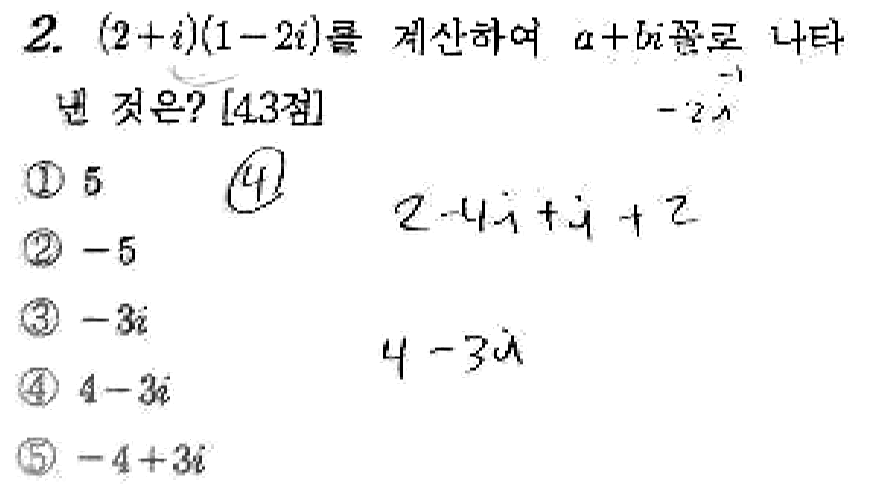 2. (2+i)(1-2i)를 계산하여 a+bi꼴로 나타
낸 것은? [4.3점]
-2i
-1
① 5
④
② -5
2-4i+i+2
③ -3i
4-3i
④ 4-3i
⑤ -4+3i